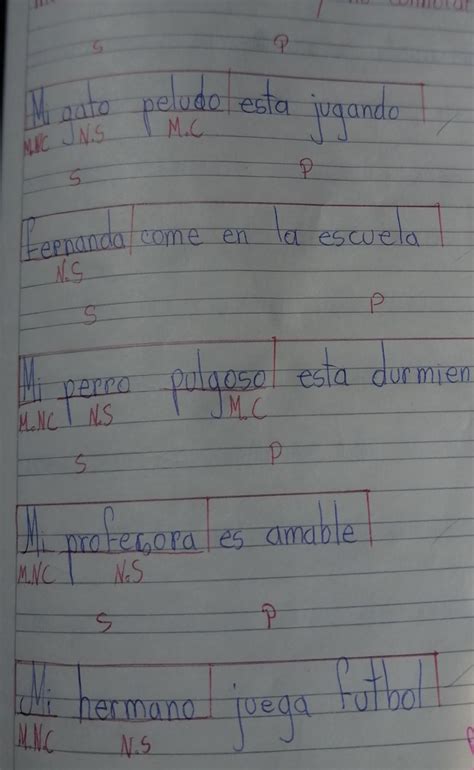 S P
Mi gato peludo esta jugando
M.NC N.S M.C
S P
Fernanda come en la escuela
N.S
S P
Mi perro pulgoso esta durmien
M.NC N.S M.C
S P
Mi profesora es amable
M.NC N.S
S P
Mi hermano juega futbol
M.N.C N.S